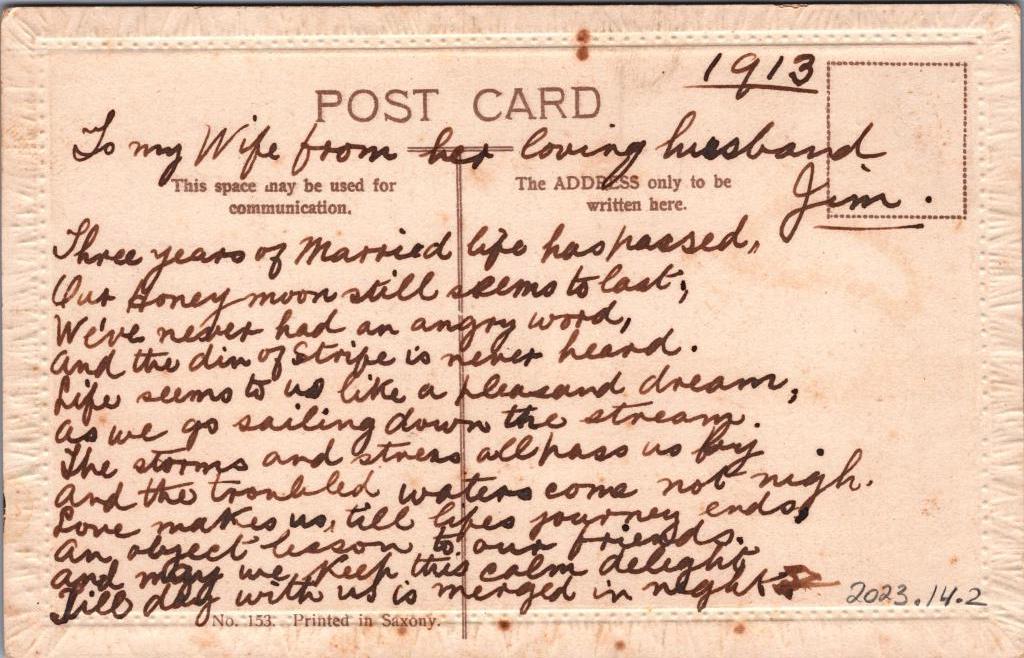 1913
POST CARD
To my Wife from her loving husband
Jim.
This space may be used for
communication.
The ADDRESS only to be
written here.
Three years of Married life has passed,
Our Honey moon still seems to last;
We've never had an angry word,
And the din of Strife is never heard.
Life seems to us like a pleasand dream,
As we go sailing down the stream.
The storms and stress all pass us by
And the troubled waters come not nigh.
Love makes us, till lifes journey ends,
An object lesson to our friends.
And may we keep this calm delight
Till day with us is merged in night.
2023.14.2
No. 153. Printed in Saxony.